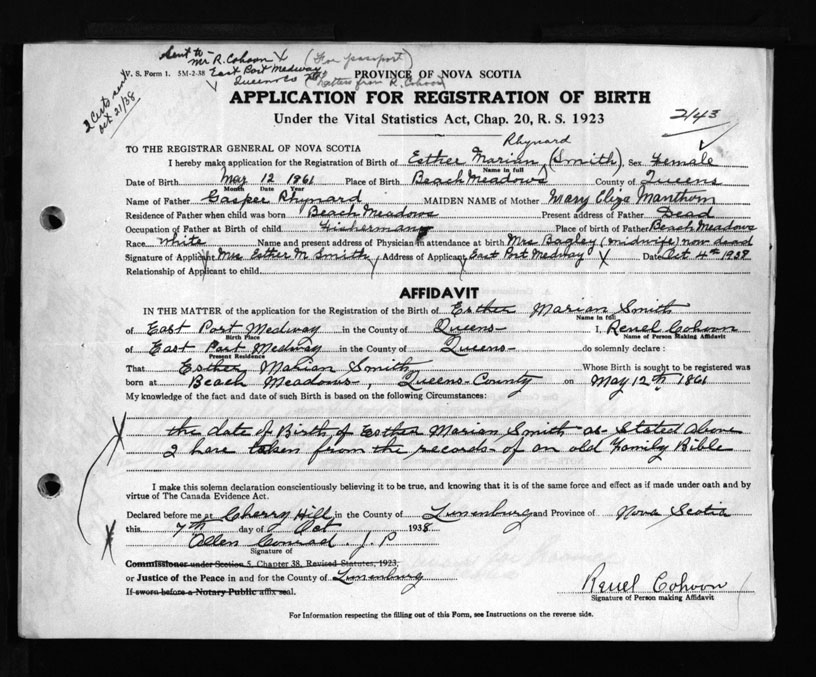 Sent to
Mr R. Cohoon (For passport)
V. S. Form 1. 5M-2-38 East Port Medway
Queens Co (Letters from R. Cohoon)
PROVINCE OF NOVA SCOTIA
2 Certs sent
Oct 21/38
APPLICATION FOR REGISTRATION OF BIRTH
Under the Vital Statistics Act, Chap. 20, R. S. 1923
2143
TO THE REGISTRAR GENERAL OF NOVA SCOTIA
Rhynard
I hereby make application for the Registration of Birth of Esther Marian (Smith), Sex Female
Name in full
Date of Birth May 12 1861 Place of Birth Beach Meadows County of Queens
Month Date Year
Name of Father Casper Rhynard MAIDEN NAME of Mother Mary Eliza Manthorn
Residence of Father when child was born Beach Meadows Present address of Father Dead
Occupation of Father at Birth of child Fisherman Place of birth of Father Beach Meadows
Race White Name and present address of Physician in attendance at birth Mrs Bagley (midwife) now dead
Signature of Applicant Mrs Esther M Smith Address of Applicant East Port Medway Date Oct 4th 1938
Relationship of Applicant to child
AFFIDAVIT
IN THE MATTER of the application for the Registration of the Birth of Esther Marian Smith
Name in full
of East Port Medway in the County of Queens I, Renel Cohoon
Birth Place Name of Person Making Affidavit
of East Port Medway in the County of Queens do solemnly declare :
Present Residence
That Esther Marian Smith Whose Birth is sought to be registered was
born at Beach Meadows, Queens County on May 12th 1861
My knowledge of the fact and date of such Birth is based on the following Circumstances:
the date of Birth of Esther Marian Smith as Stated Above
I have taken from the records of an old Family Bible
I make this solemn declaration conscientiously believing it to be true, and knowing that it is of the same force and effect as if made under oath and by
virtue of The Canada Evidence Act.
Declared before me at Cherry Hill in the County of Lunenburg and Province of Nova Scotia
this 7th day of Oct 1938
Allen Conrad J. P
Signature of
Commissioner under Section 5, Chapter 38, Revised Statutes, 1923,
or Justice of the Peace in and for the County of Lunenburg
If sworn before a Notary Public affix seal.
Renel Cohoon
Signature of Person making Affidavit
For Information respecting the filling out of this Form, see Instructions on the reverse side.